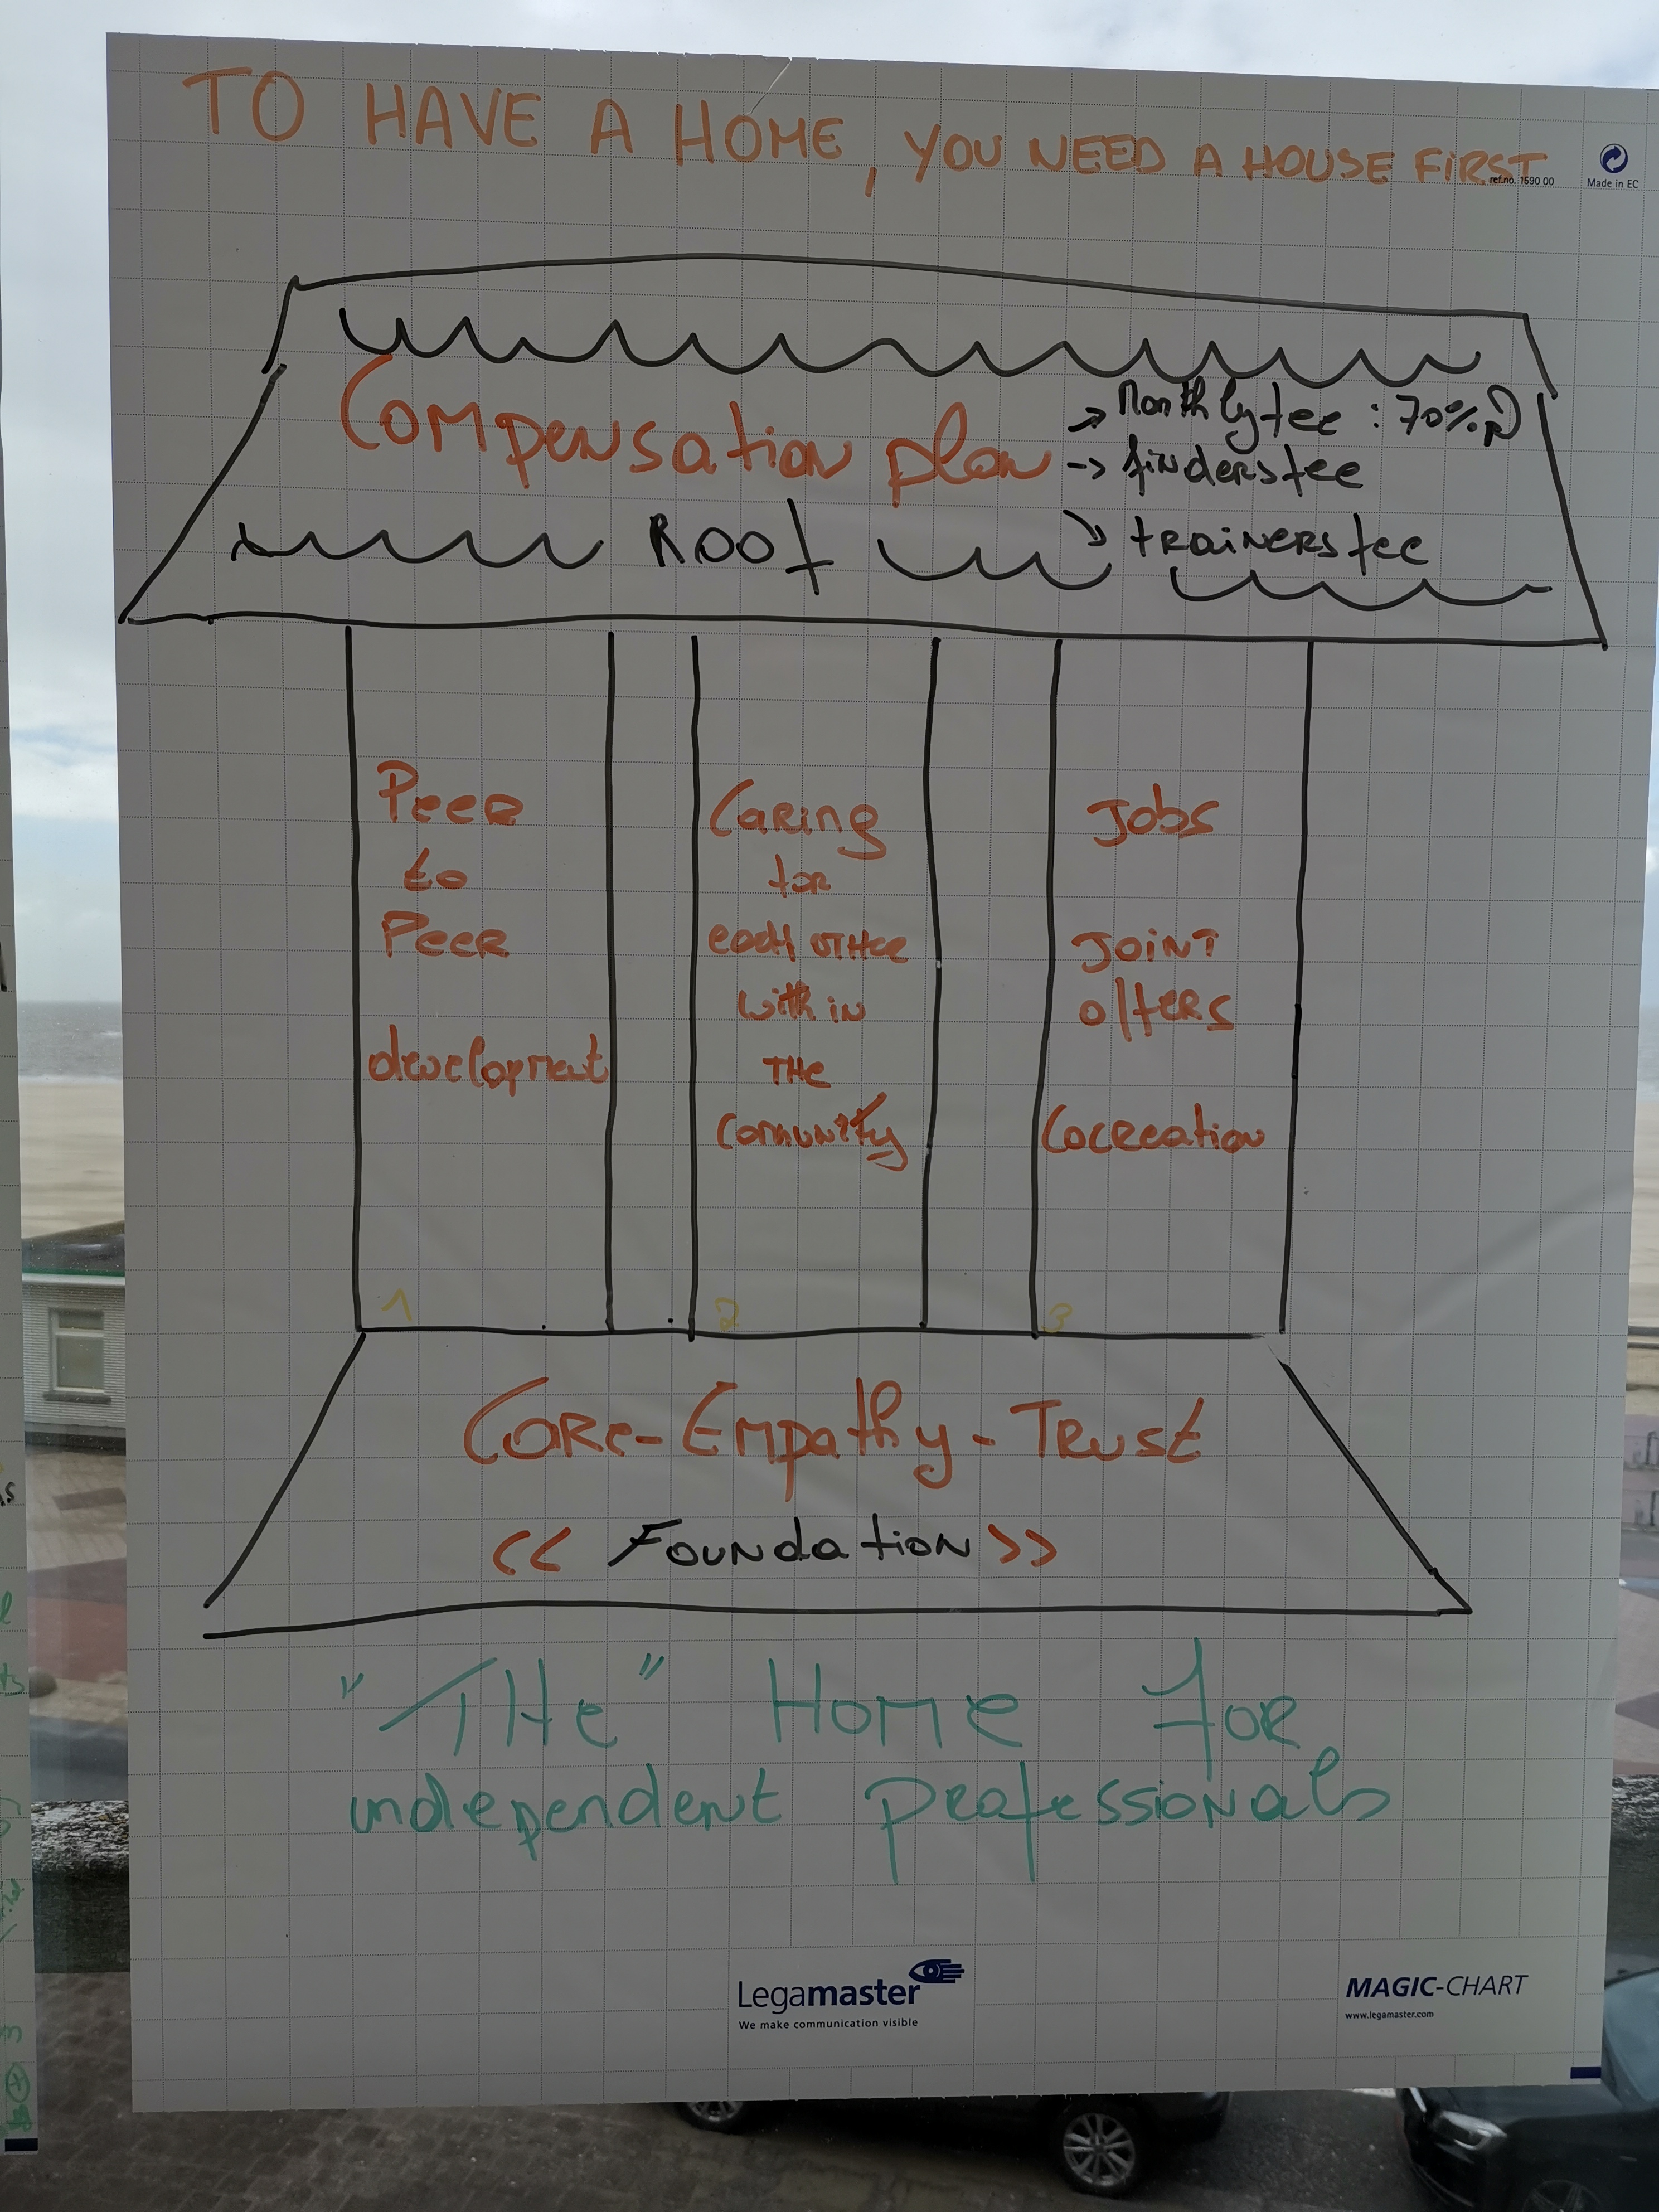 TO HAVE A HOME, YOU NEED A HOUSE FiRST
ref.no. 1590 00
Made in EC
Compensation plan
→ Monthly fee : 70%
→ finders fee
→ trainers fee
Roof
Peer
to
Peer
development
Caring
for
each other
with in
THe
Comunity
Jobs
JOiNT
offers
Cocreation
1
2
3
Care-Empathy-Trust
<< Foundation >>
"THe" Home for
independent professionals
Legamaster
We make communication visible
MAGIC-CHART
www.legamaster.com